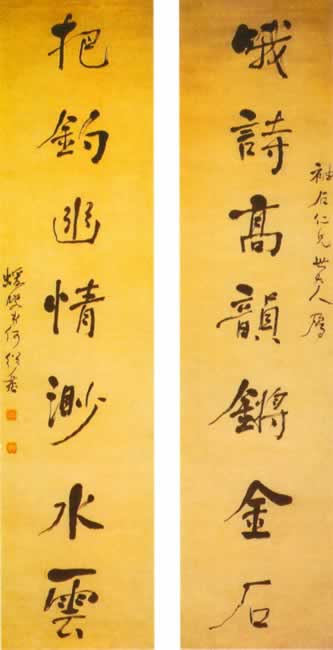 哦詩高韻鏘金石
袖石仁兄世大人屬
把釣幽情渺水雲
蝯叟弟何紹基